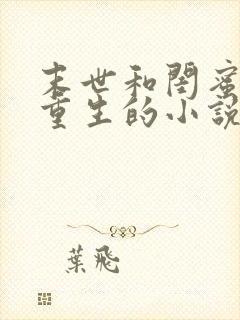 末世和閨蜜
重生的小說
葉飛